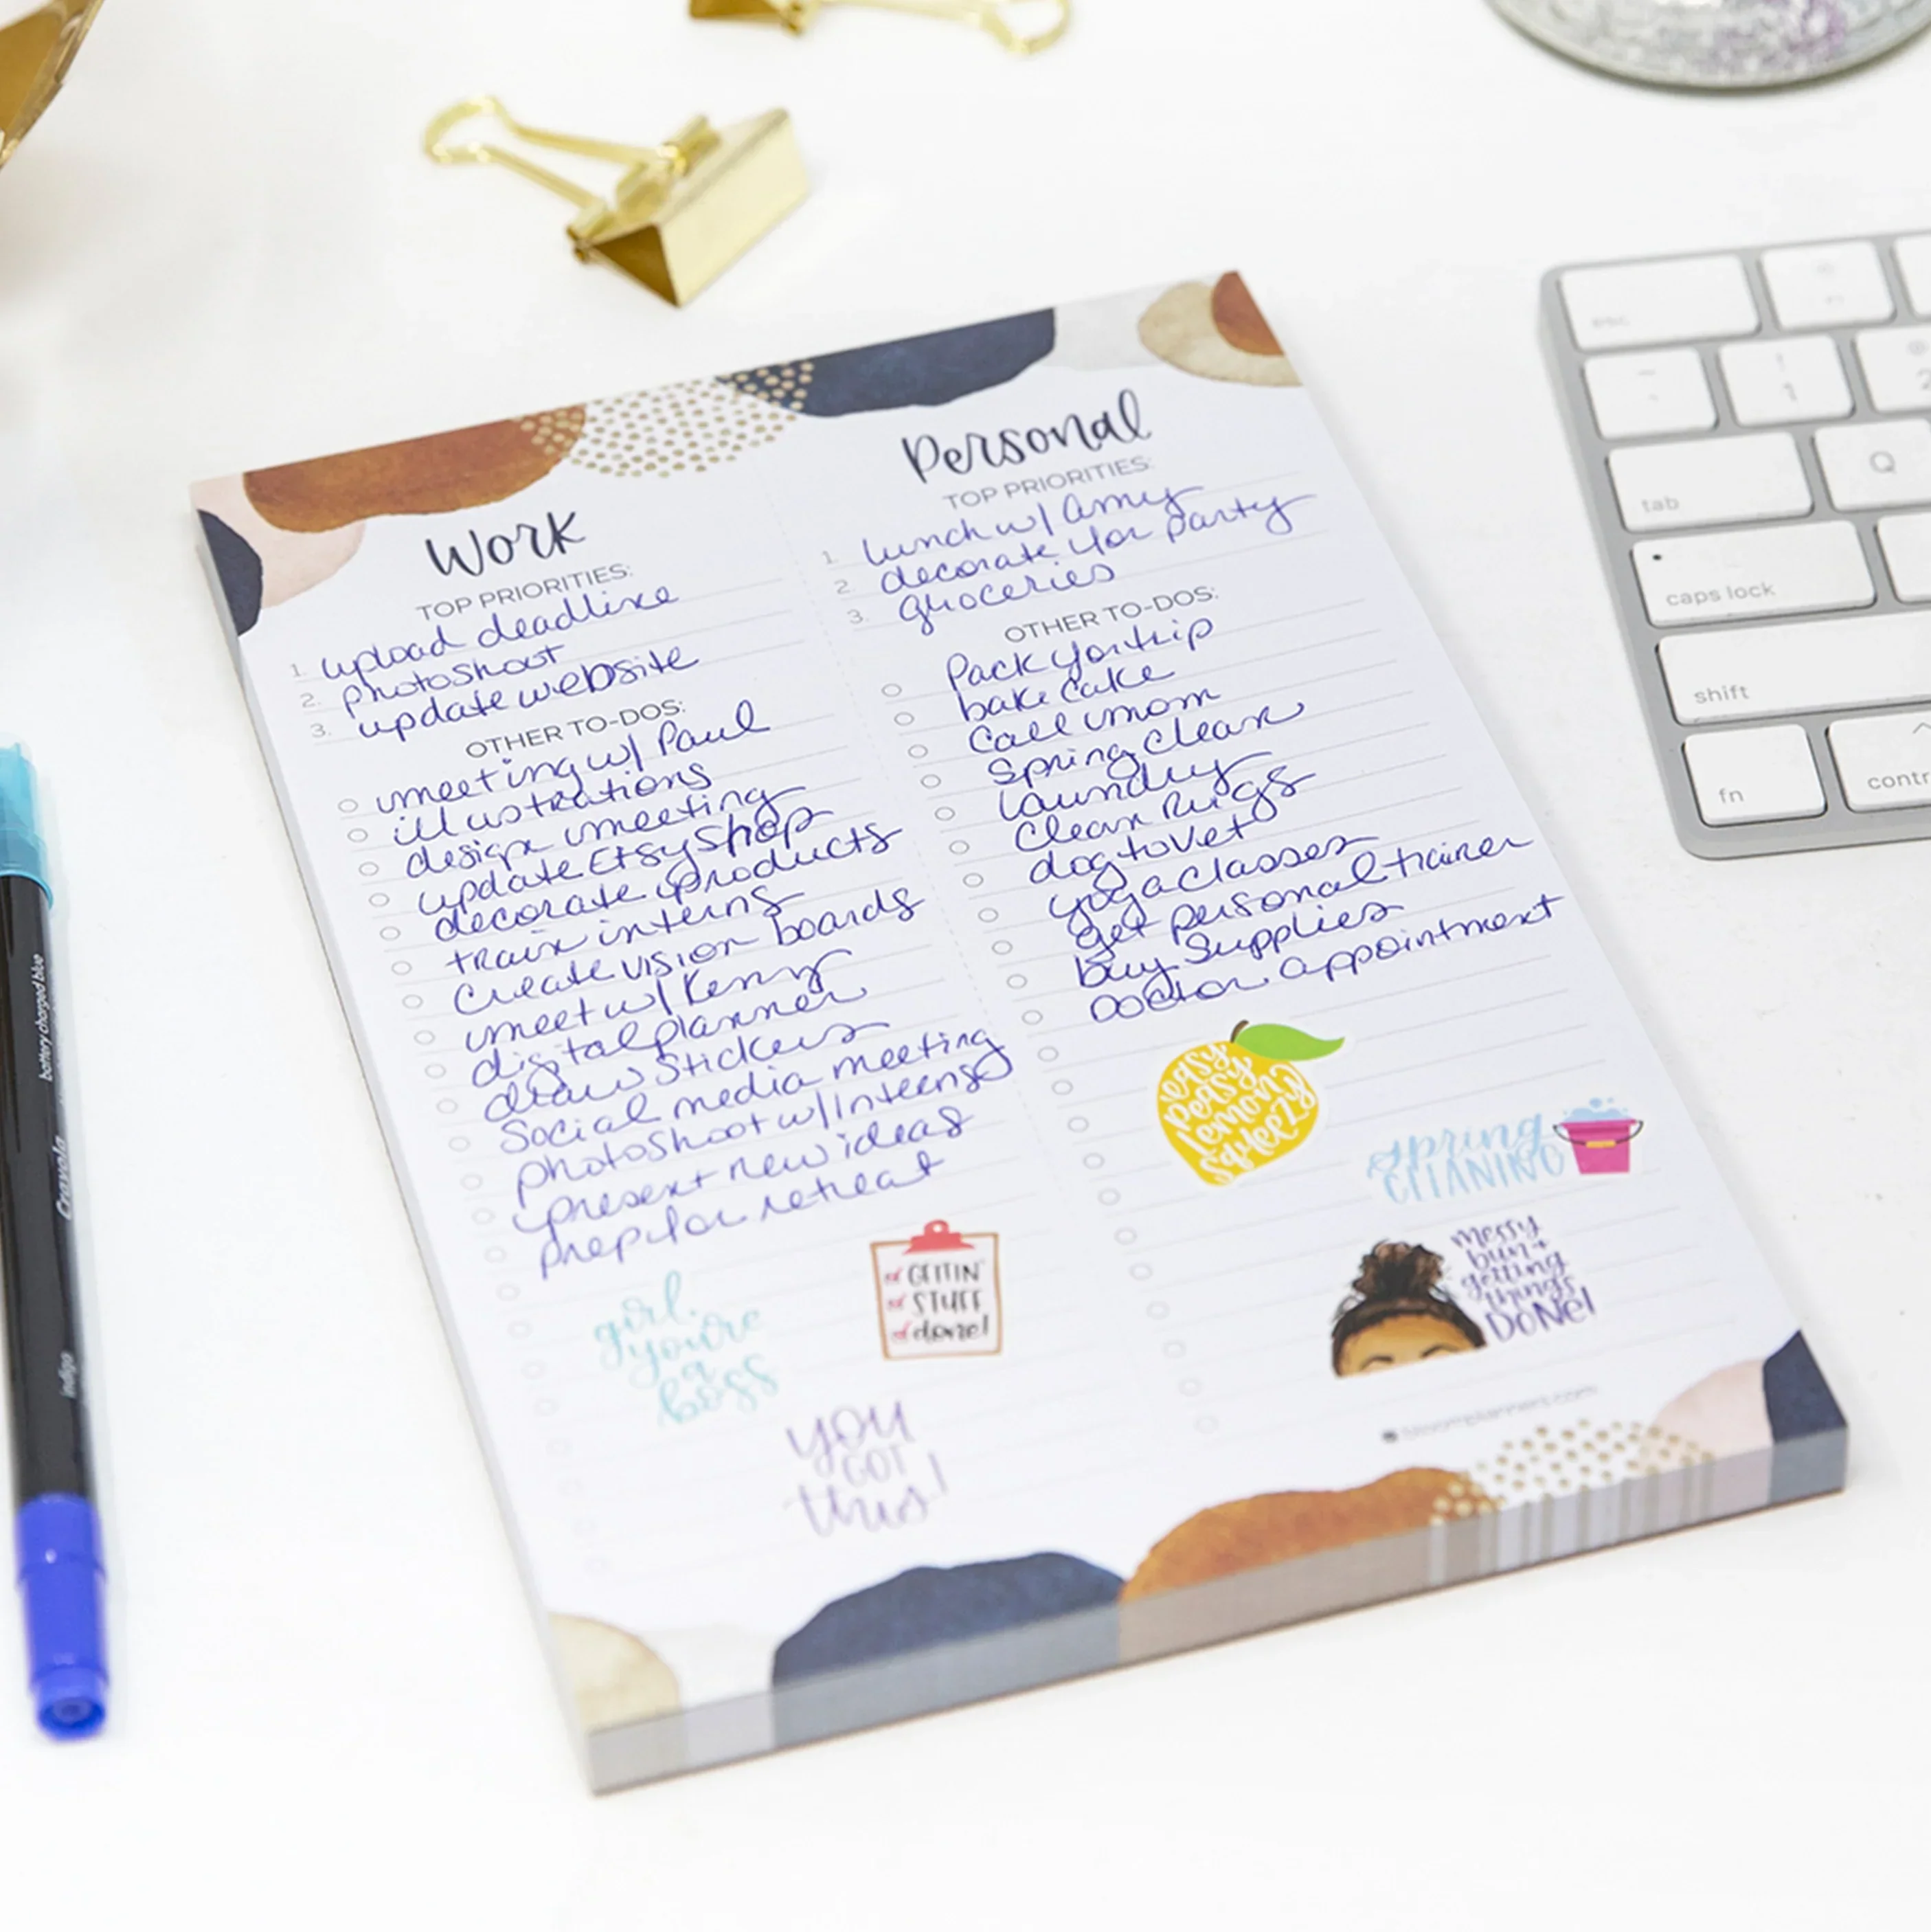 Work
TOP PRIORITIES:
1. upload deadline
2. photoshoot
3. update website
OTHER TO-DOS:
meeting w/ Paul
illustrations
design meeting
update Etsy Shop
decorate products
train interns
Create vision boards
meet w/ Kenny
digital planner
draw Stickers
Social media meeting
photoshoot w/ Interns
present new ideas
prep for retreat
girl,
you're
a
boss
GETTIN'
STUFF
done!
YOU
GOT
this!
Personal
TOP PRIORITIES:
1. lunch w/ Amy
2. decorate for party
3. groceries
OTHER TO-DOS:
Pack for trip
bake cake
Call mom
Spring Clean
laundry
Clean Rugs
dog to Vet
yoga classes
get personal trainer
buy Supplies
Doctor appointment
easy
peasy
lemon
squeezy
spring
CLEANING
messy
bun +
getting
things
DONE!
bloomplanners.com
esc
1
2
tab
Q
caps lock
shift
fn
contr
battery charged blue
Crayola
indigo